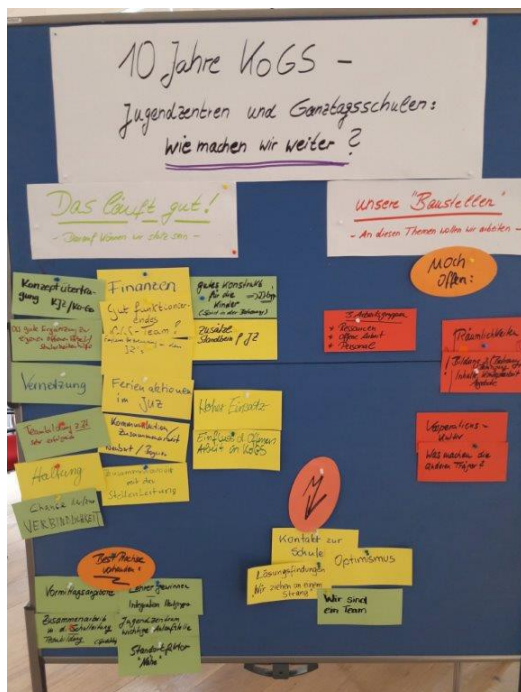 10 Jahre KoGS -
Jugendzentren und Ganztagsschulen:
Wie machen wir weiter?
Das läuft gut!
- Darauf können wir stolz sein -
unsere "Baustellen"
- An diesen Themen wollen wir arbeiten -
Noch
offen:
Konzeptübertra-
gung
Vernetzung
Teambildung
Haltung
Chance
VERBINDLICHKEIT
Finanzen
Gut funktionier-
endes
Team!
Ferienaktionen
im JUZ
Kommunikation/
Zusammenarbeit
Zusammenarbeit
mit der
Stellenleitung
gutes Konstrukt
für die
Kinder
zusätzl.
Standbein f. JZ
Hoher Einsatz
Einfluss d. Offenen
Arbeit in KoGS
3 Arbeitsgruppen
* Ressourcen
* offene Arbeit
* Personal
Räumlichkeiten
Was machen die
anderen Träger?
Kontakt zur
Schule
Optimismus
Lösungsfindungen
"Wir ziehen an einem
Strang"
Wir sind
ein Team
Best Practice
vorhanden!
Vormittagsangebote
Zusammenarbeit
m. d. Schulleitung
Teambildung
Lehrer gewinnen
Integration
Jugendzentren
wichtige Anlaufstelle
Standortfaktor
"Nähe"